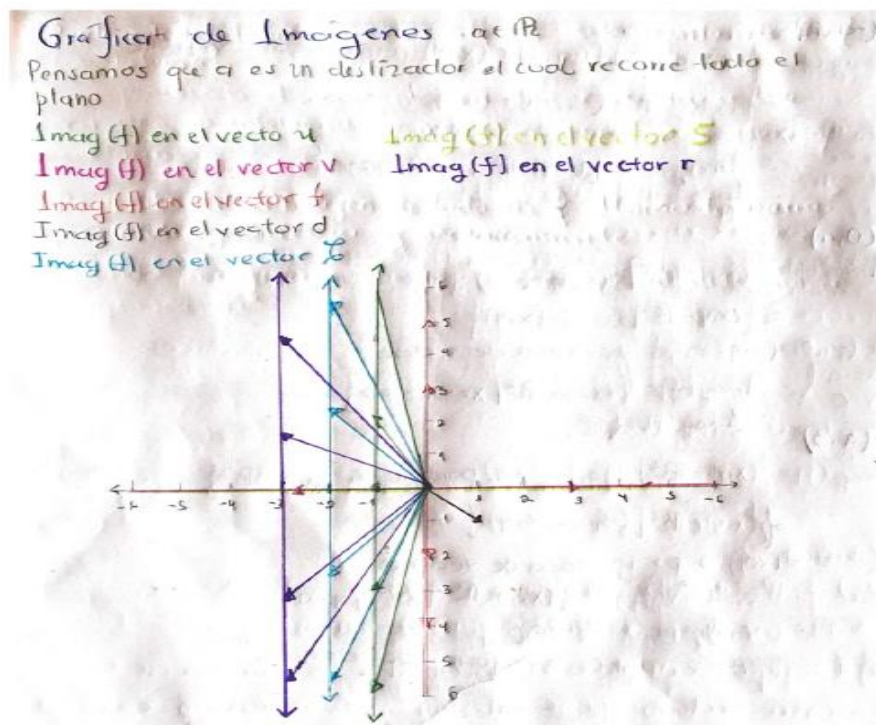 Graficar de Imagenes a∈ℝ
Pensamos que a es un deslizador el cual recorre todo el
plano
Imag (f) en el vecto u Imag (f) en el vector S
Imag (f) en el vector v Imag (f) en el vector r
Imag (f) en el vector t
Imag (f) en el vector d
Imag (f) en el vector
6
5
4
3
2
1
-6 -5 -4 -3 -2 -1 1 2 3 4 5 -6
-1
-2
3
4
5
6